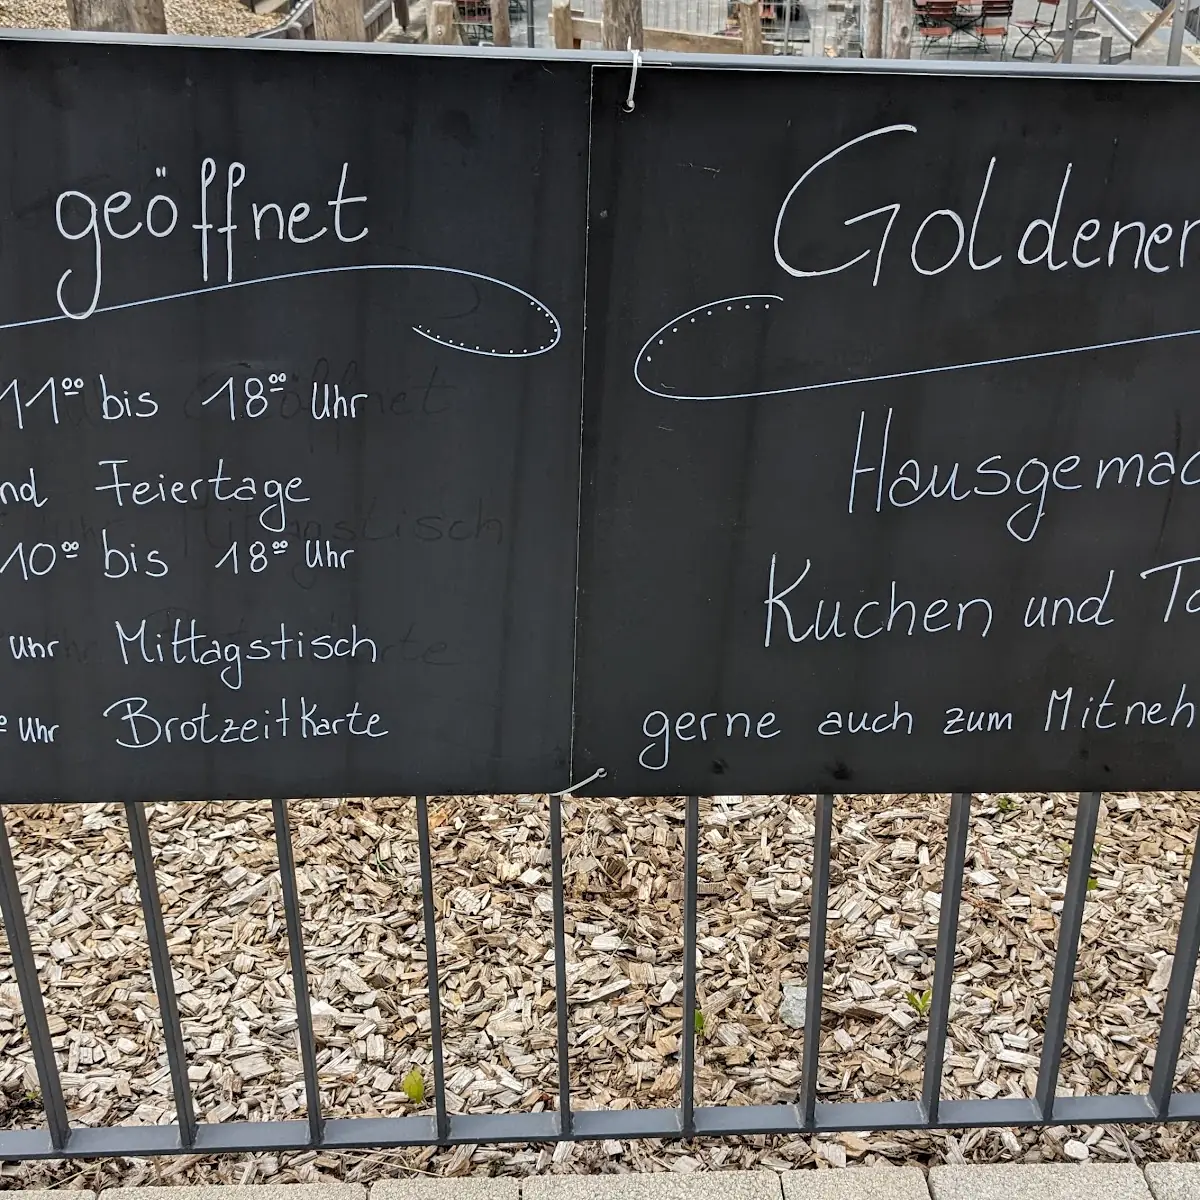 geöffnet
11⁰⁰ bis 18⁰⁰ Uhr
nd Feiertage
10⁰⁰ bis 18⁰⁰ Uhr
Uhr Mittagstisch
Uhr Brotzeitkarte
Goldener
Hausgemac
Kuchen und To
gerne auch zum Mitneh